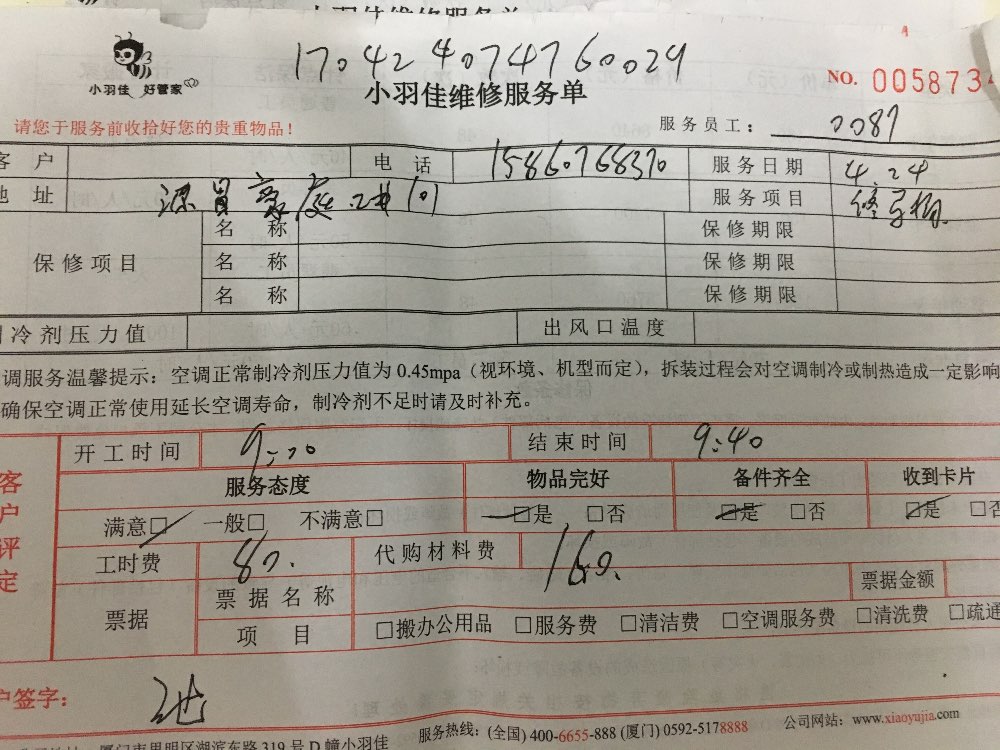 170424074760029
小羽佳 好管家
小羽佳维修服务单
NO. 0058734
请您于服务前收拾好您的贵重物品！
服务员工： 0087
客 户 电 话 15860768370 服务日期 4.24
地 址 源昌豪庭 2# 101 服务项目
名 称 保修期限
保修项目 名 称 保修期限
名 称 保修期限
冷剂压力值 出风口温度
调服务温馨提示：空调正常制冷剂压力值为 0.45mpa（视环境、机型而定），拆装过程会对空调制冷或制热造成一定影响
确保空调正常使用延长空调寿命，制冷剂不足时请及时补充。
客户评定
开工时间 9:00 结束时间 9:40
服务态度 物品完好 备件齐全 收到卡片
满意□ 一般□ 不满意□ □是 □否 □是 □否 □是 □否
工时费 80. 代购材料费 160.
票据 票据名称 票据金额
项 目 □搬办公用品 □服务费 □清洁费 □空调服务费 □清洗费 □疏通
户签字：
服务热线：(全国) 400-6655-888 (厦门) 0592-5178888 公司网站：www.xiaoyujia.com
厦门市思明区湖滨东路 319 号 D 幢小羽佳